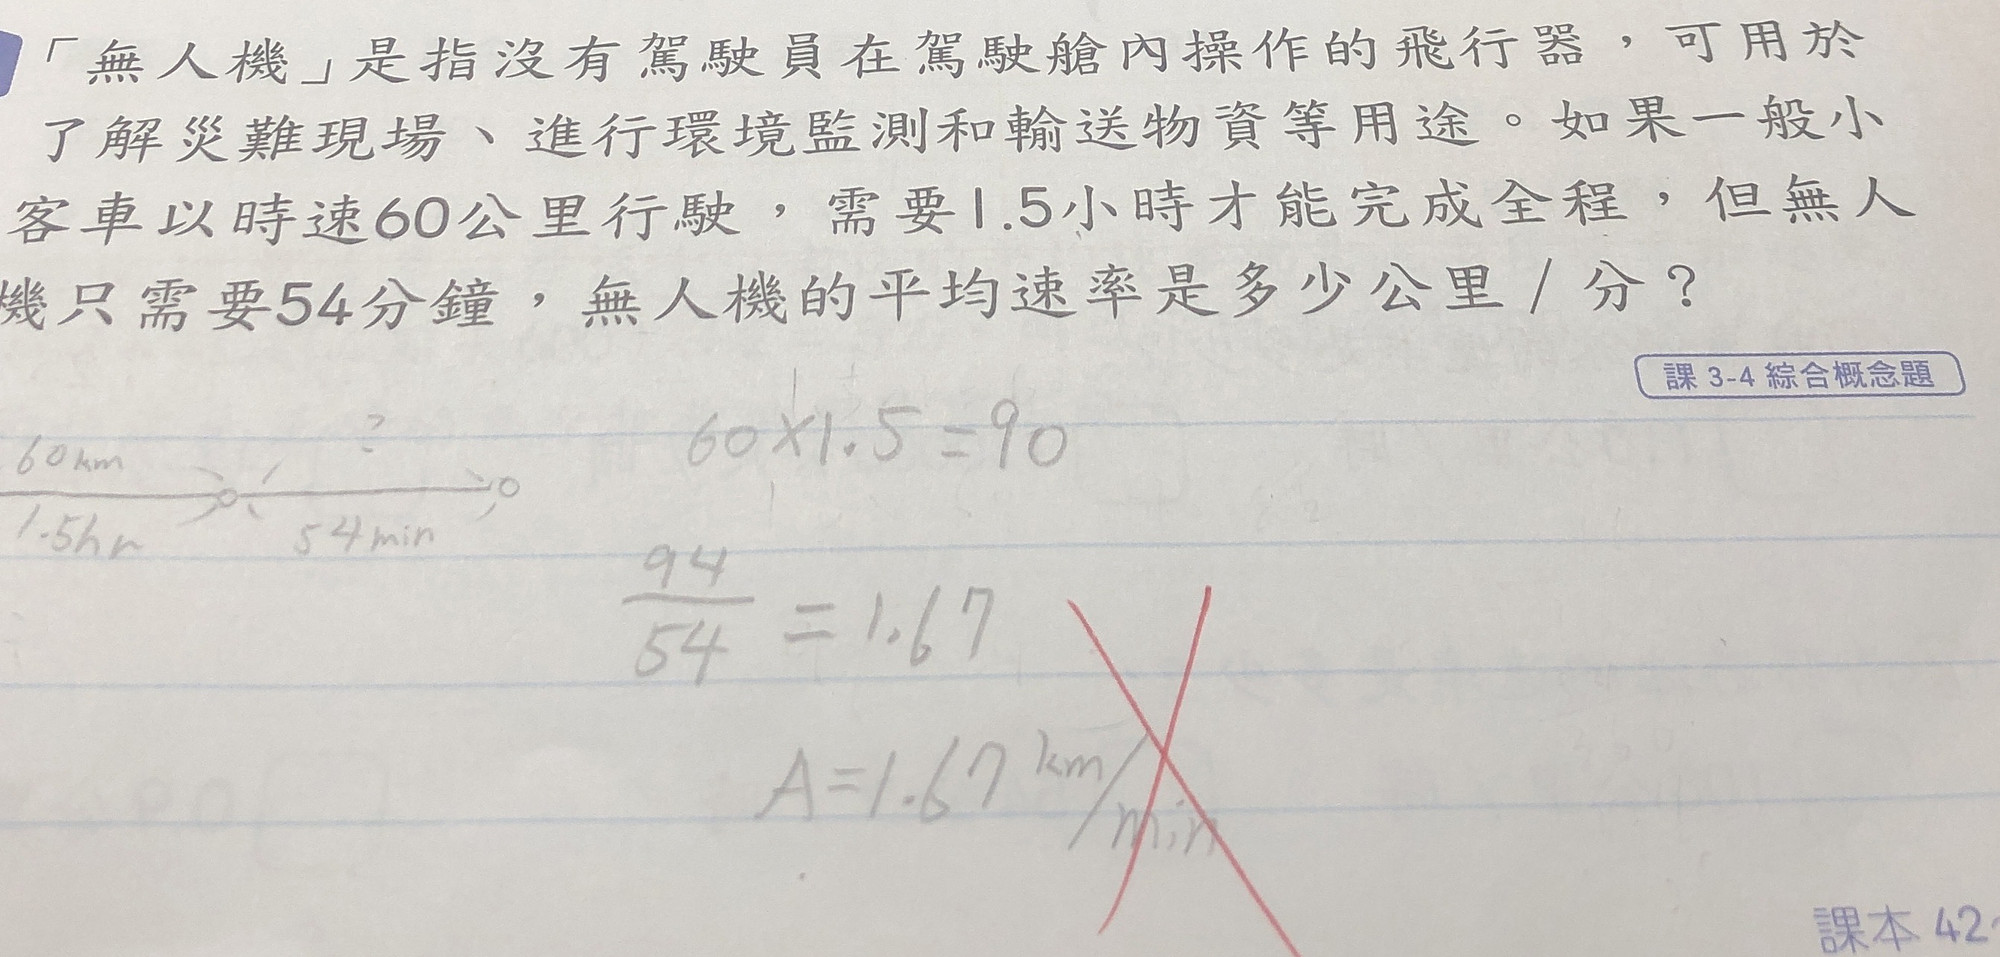 「無人機」是指沒有駕駛員在駕駛艙內操作的飛行器，可用於
了解災難現場、進行環境監測和輸送物資等用途。如果一般小
客車以時速60公里行駛，需要1.5小時才能完成全程，但無人
機只需要54分鐘，無人機的平均速率是多少公里/分？
課 3-4 綜合概念題
60km
?
1.5hr
54min
60×1.5=90
94
54
=1.67
A=1.67 km/min
課本 42